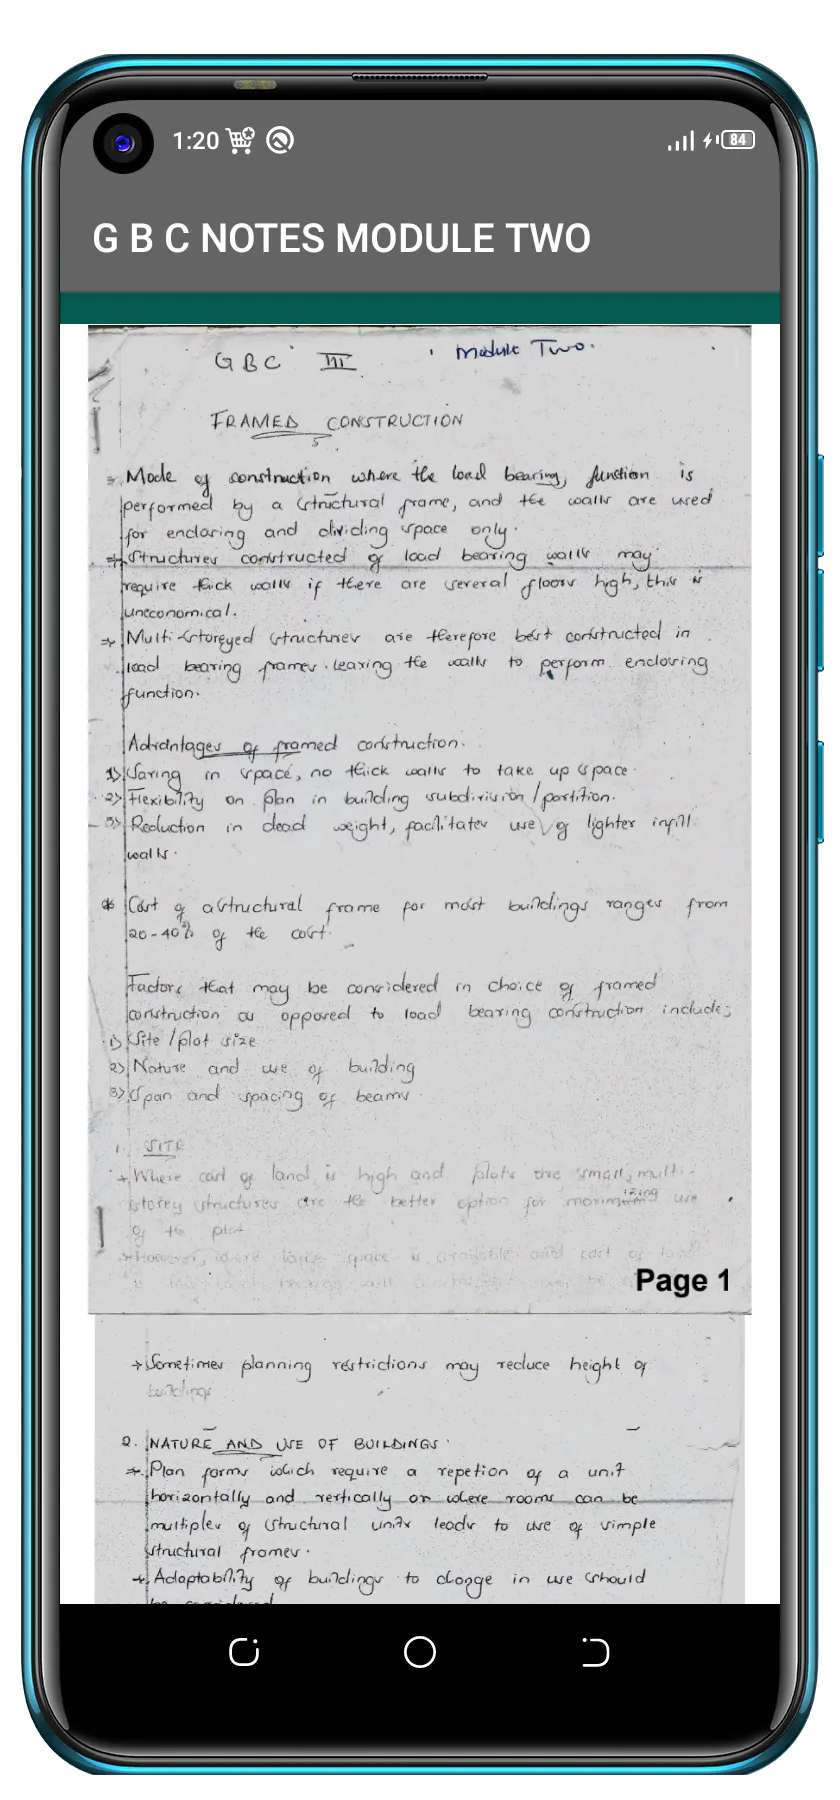 1:20
84
G B C NOTES MODULE TWO
GBC III
Module Two.
FRAMED CONSTRUCTION
Mode of construction where the load bearing, function is
performed by a structural frame, and the walls are used
for enclosing and dividing space only.
Structures constructed of load bearing walls may
require thick walls if there are several floors high, this is
uneconomical.
Multi-storeyed structures are therefore best constructed in
load bearing frames. leaving the walls to perform enclosing
function.
Advantages of framed construction.
1) Saving in space, no thick walls to take up space.
2) Flexibility on plan in building subdivision/partition.
3) Reduction in dead weight, facilitates use of lighter infill
walls.
Cost of a structural frame for most buildings ranges from
20-40% of the cost.
Factors that may be considered in choice of framed
construction as opposed to load bearing construction include;
1) Site/plot size
2) Nature and use of building
3) Span and spacing of beams.
1. SITE
Where cost of land is high and plots are small, multi-
storey structures are the better option for maximizing use
of the plot
However, where large space is available and cost of
Page 1
Sometimes planning restrictions may reduce height of
buildings
2. NATURE AND USE OF BUILDINGS.
Plan forms which require a repetion of a unit
horizontally and vertically or where rooms can be
multiples of structural units leads to use of simple
structural frames.
Adaptability of buildings to change in use should
be considered